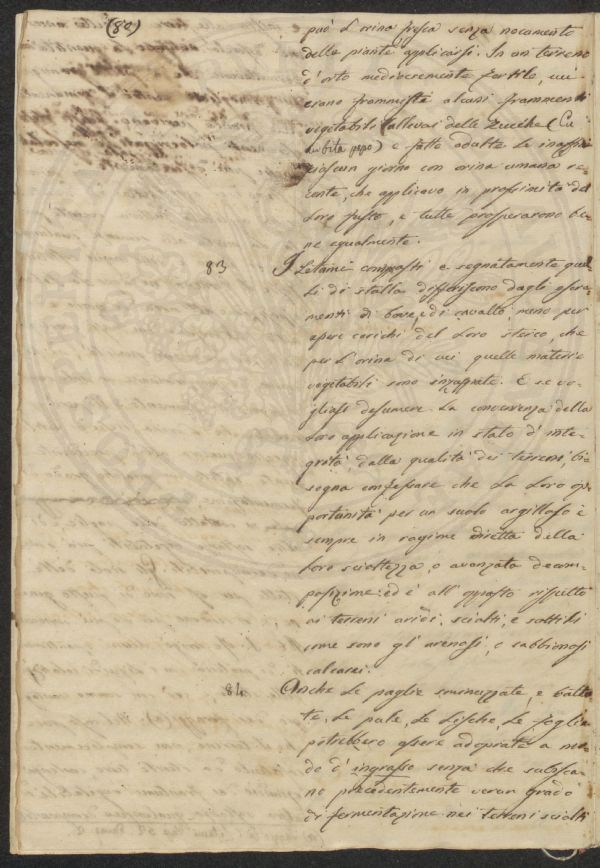 (82)
può l'orina fresca senza nocumento
delle piante applicarsi. In un terreno
d'orto mediocremente fertile, cui
erano frammisti alcuni frammenti
vegetabili allevai delle Zucche (Cu
curbita pepo) e fatte adulte le inaffiai
ciascun giorno con orina umana re-
cente, che applicavo in prossimità del
loro fusto, e tutte prosperarono be-
ne egualmente.
83 I Letami composti e segnatamente quel-
li di stalla differiscono dagli escre-
menti di bove, e di cavallo, meno per
essere carichi del loro sterco, che
per l'orina di cui quelle materie
vegetabili sono inzuppate. E se vo-
gliasi desumere la convenienza della
loro applicazione in stato d'inte-
grità dalla qualità dei terreni, bi-
sogna confessare che la loro op-
portunità per un suolo argilloso è
sempre in ragione diretta della
loro scioltezza, o avanzata decom-
posizione: ed è all'opposto rispetto
ai terreni aridi, sciolti, e sottili
come sono gl'arenosi, e sabbionosi
calcarei.
84. Anche le paglie sminuzzate, e battu-
te, le pule, le Lesche, le foglie
potrebbero essere adoprate a mo-
do d'ingrasso senza che subisca-
no precedentemente verun grado
di fermentazione nei terreni sciolti